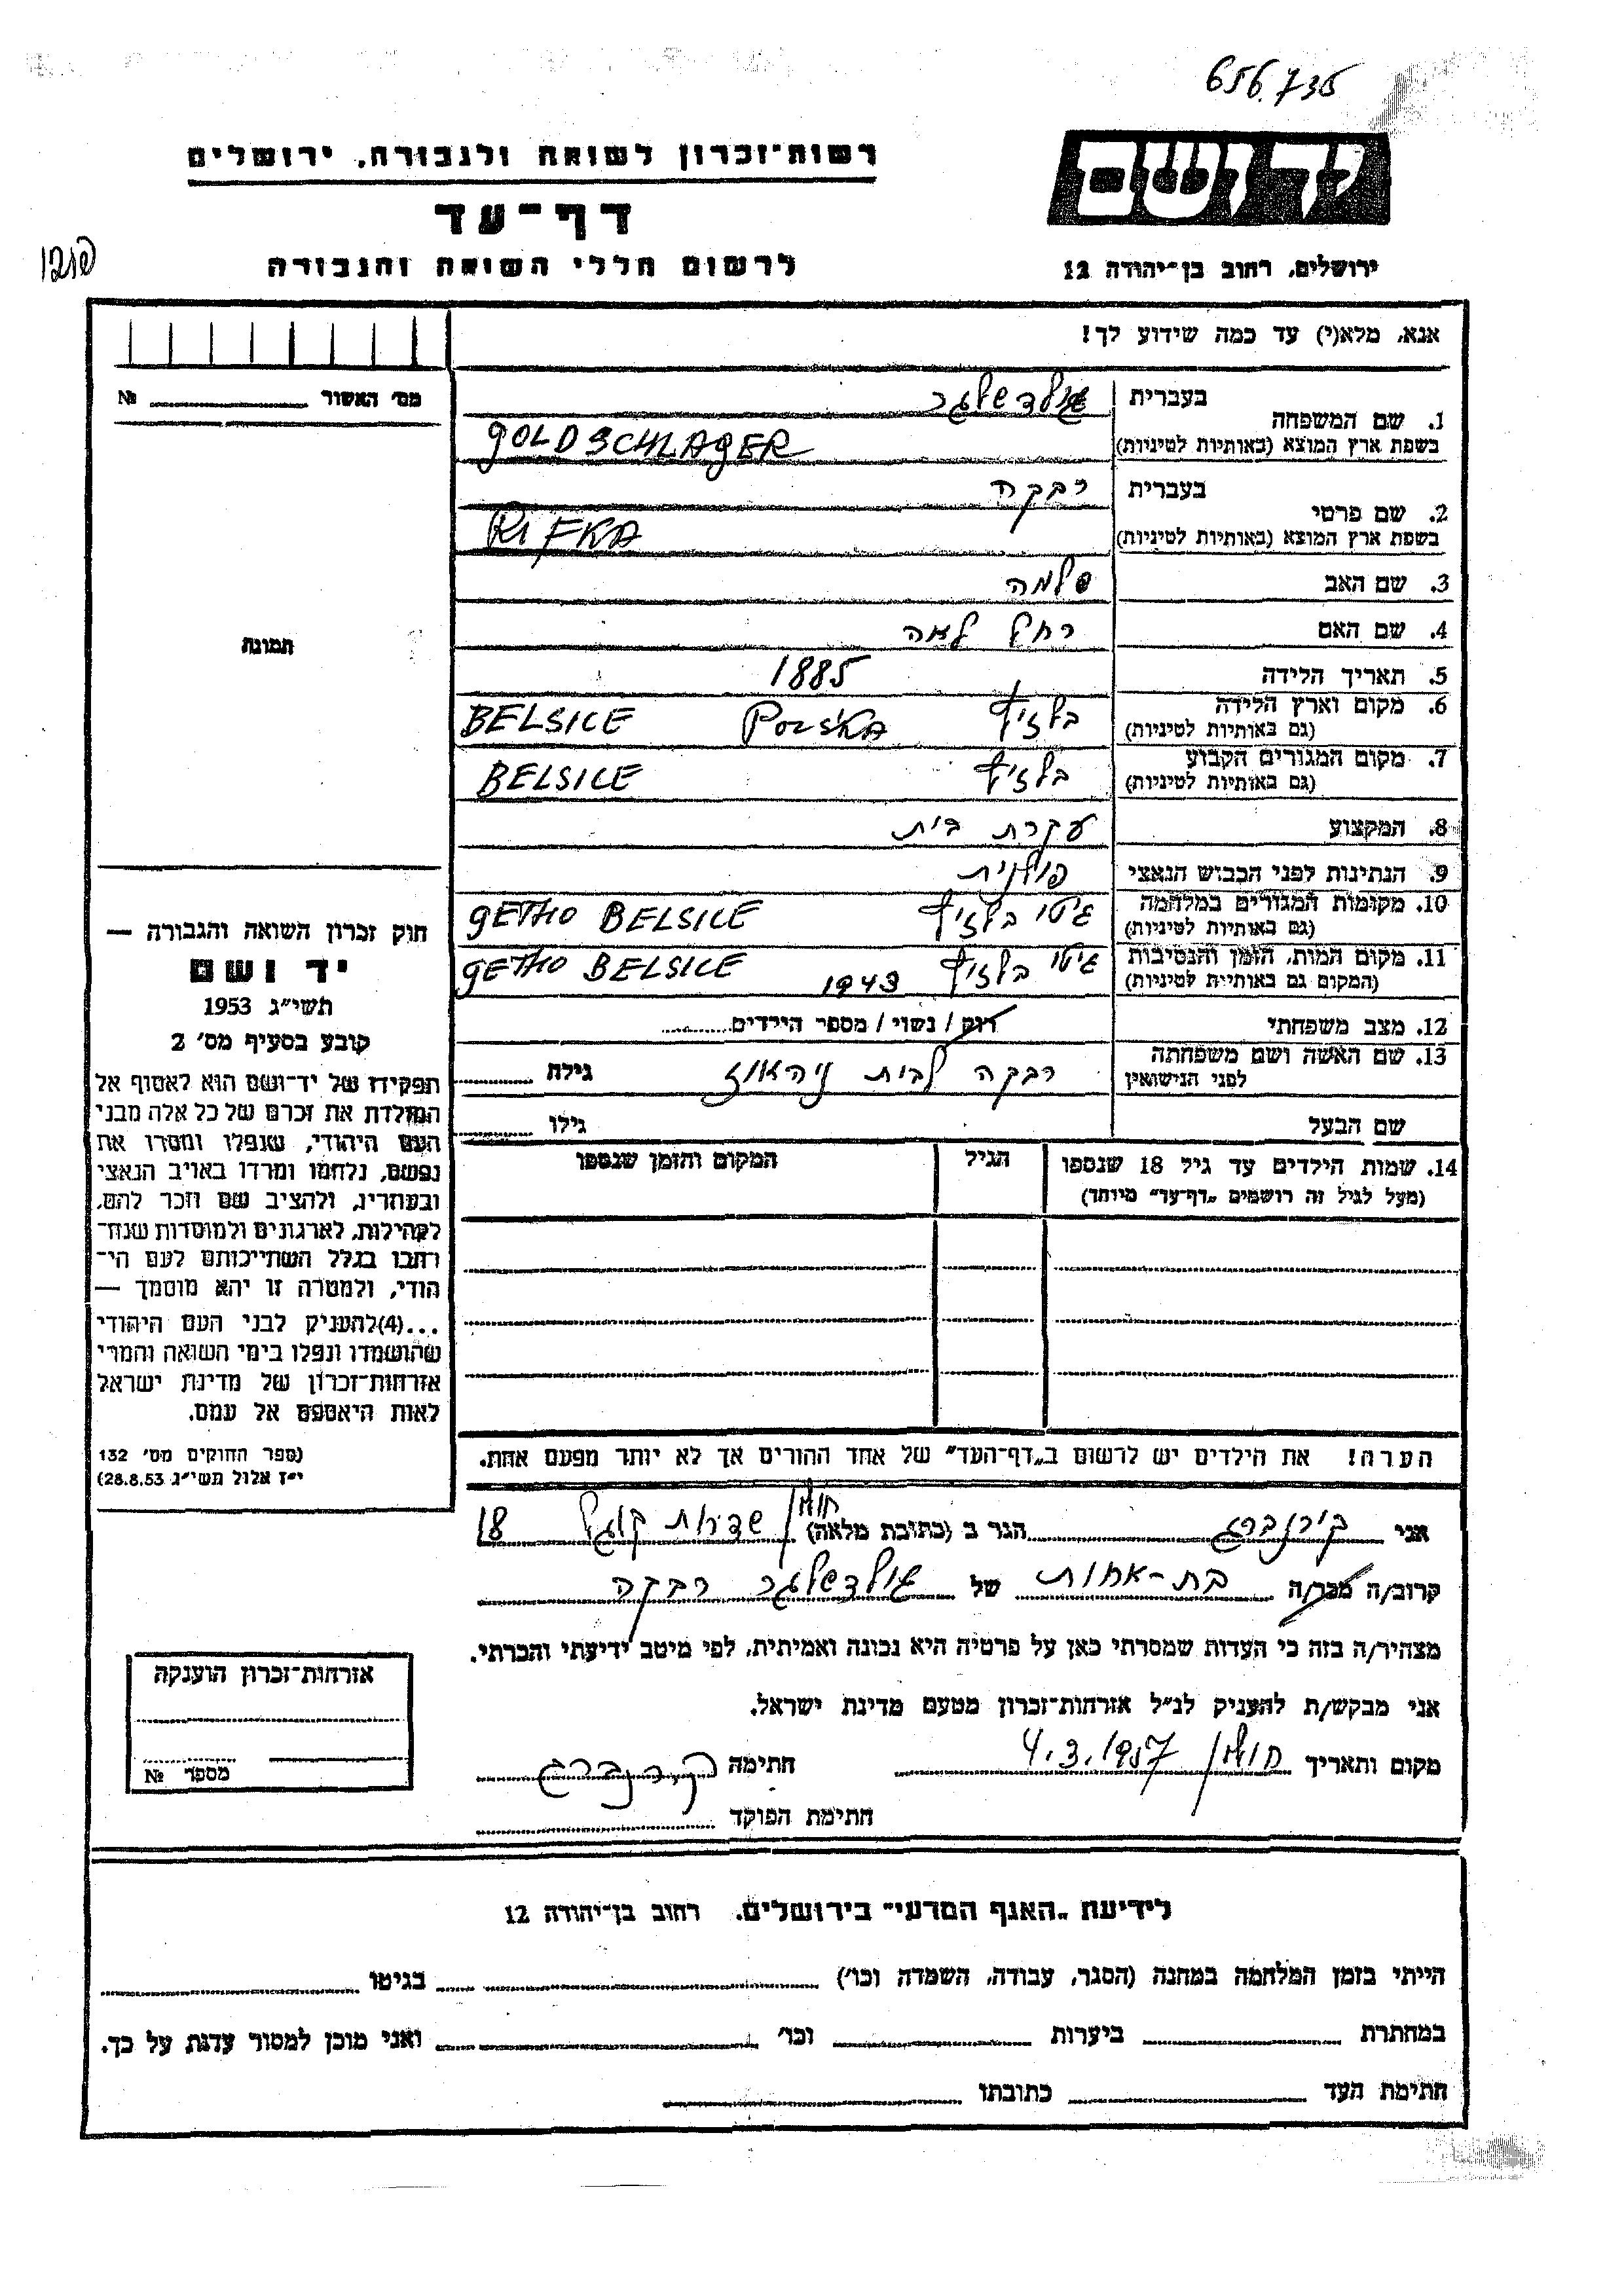 656.735
יד ושם
רשות־זכרון לשואה ולגבורה, ירושלים
דף־עד
לרשום חללי השואה והגבורה
ירושלים, רחוב בן־יהודה 12
אנא, מלא(י) עד כמה שידוע לך!
מס׳ האשור № 
1. שם המשפחה בעברית גולדשלגר
בשפת ארץ המוצא (באותיות לטיניות) GOLDSCHLAGER
2. שם פרטי בעברית רבקה
בשפת ארץ המוצא (באותיות לטיניות) RIFKA
3. שם האב שלמה
4. שם האם רחל לאה
5. תאריך הלידה 1885
6. מקום וארץ הלידה (גם באותיות לטיניות) בלזיץ POLSKA BELSICE
7. מקום המגורים הקבוע (גם באותיות לטיניות) בלזיץ BELSICE
8. המקצוע עקרת בית
9. הנתינות לפני הכבוש הנאצי פולנית
10. מקומות המגורים במלחמה (גם באותיות לטיניות) גיטו בלזיץ GETHO BELSICE
11. מקום המות, הזמן והנסיבות (המקום גם באותיות לטיניות) גיטו בלזיץ 1943 GETHO BELSICE
12. מצב משפחתי רוק / נשוי / מספר הילדים
13. שם האשה ושם משפחתה לפני הנישואין רבקה לבית ניהאוז גילה
שם הבעל גילו
14. שמות הילדים עד גיל 18 שנספו הגיל המקום והזמן שנספו
(מעל לגיל זה רושמים „דף־עד״ מיוחד)
הערה! את הילדים יש לרשום ב„דף־העד״ של אחד ההורים אך לא יותר מפעם אחת.
תמונה
חוק זכרון השואה והגבורה —
יד ושם
תשי״ג 1953
קובע בסעיף מס׳ 2
תפקידו של יד־ושם הוא לאסוף אל
המולדת את זכרם של כל אלה מבני
העם היהודי, שנפלו ומסרו את
נפשם, נלחמו ומרדו באויב הנאצי
ובעוזריו, ולהציב שם וזכר להם,
לקהילות, לארגונים ולמוסדות שנח־
רבו בגלל השתייכותם לעם הי־
הודי, ולמטרה זו יהא מוסמך —
...(4)להעניק לבני העם היהודי
שהושמדו ונפלו בימי השואה והמרי
אזרחות־זכרון של מדינת ישראל
לאות היאספם אל עמם.
(ספר החוקים מס׳ 132
י״ז אלול תשי״ג 28.8.53)
אני בירנברג הגר ב (כתובת מלאה) חולון שדרות קוגל 18
קרוב/ה מכר/ה בת-אחות של גולדשלגר רבקה
מצהיר/ה בזה כי העדות שמסרתי כאן על פרטיה היא נכונה ואמיתית, לפי מיטב ידיעתי והכרתי.
אני מבקש/ת להעניק לנ״ל אזרחות־זכרון מטעם מדינת ישראל.
מקום ותאריך חולון 4.3.1957 חתימה בירנברג
חתימת הפוקד
אזרחות־זכרון הוענקה
מספר №
לידיעת „האגף המדעי״ בירושלים, רחוב בן־יהודה 12
הייתי בזמן המלחמה במחנה (הסגר, עבודה, השמדה וכו׳) בגיטו
במחתרת ביערות וכו׳ ואני מוכן למסור עדות על כך.
חתימת העד כתובתו